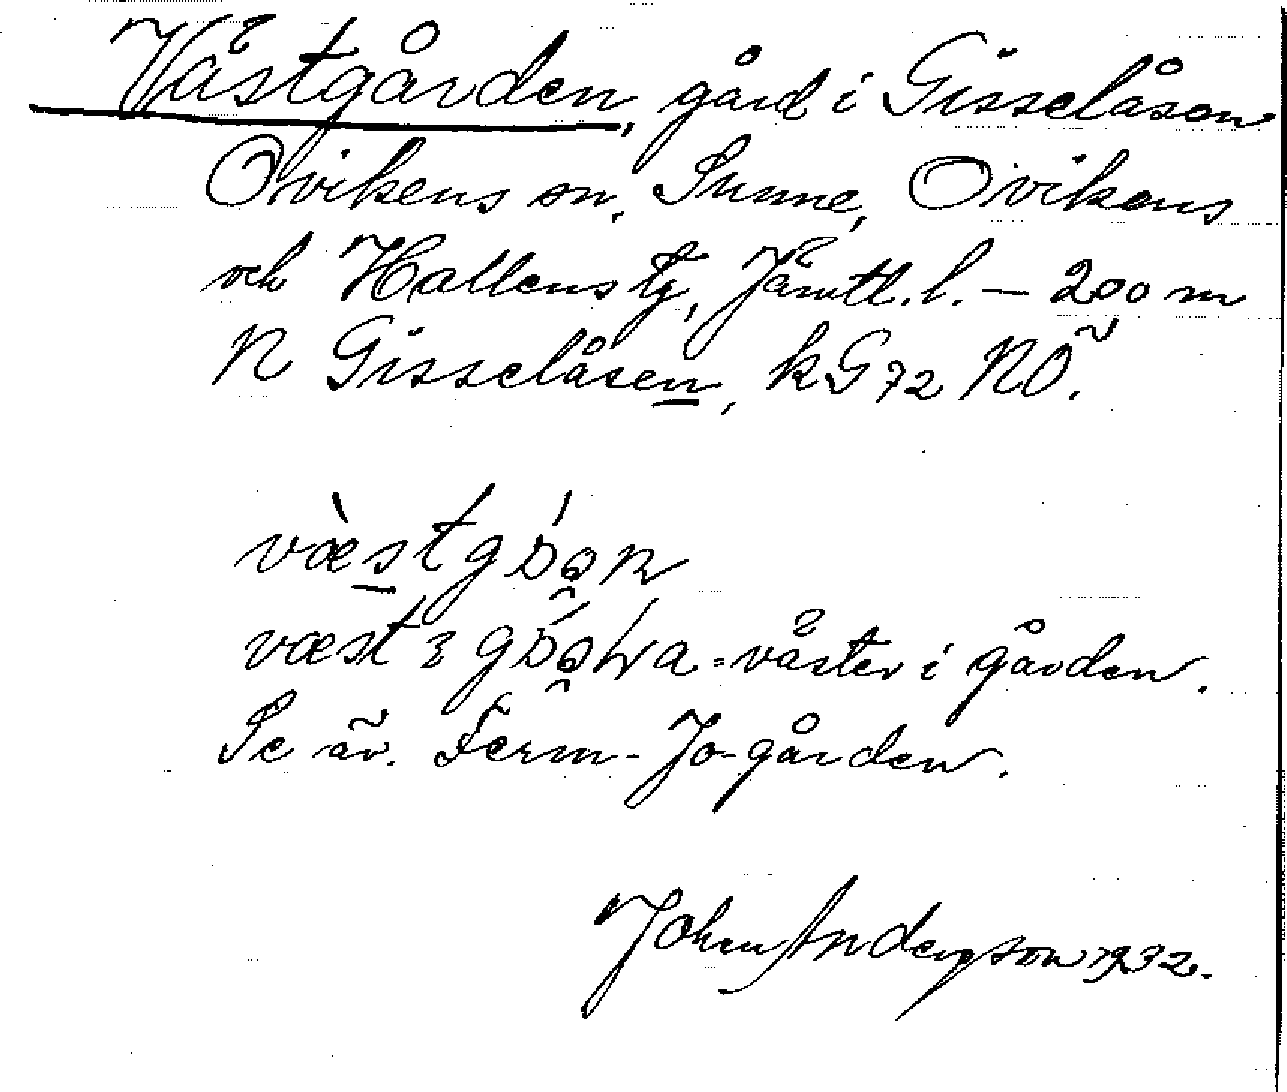 Västgården, gård i Gisselåsen
Ovikens sn, Sunne, Ovikens
och Hallens tg, Jämtl. l. — 200 m
N Gisselåsen, kG 72 NÖ.
væst
væst = väster i gården.
Se äv. Ferm-Jo-gården.
John Anderson 1932.